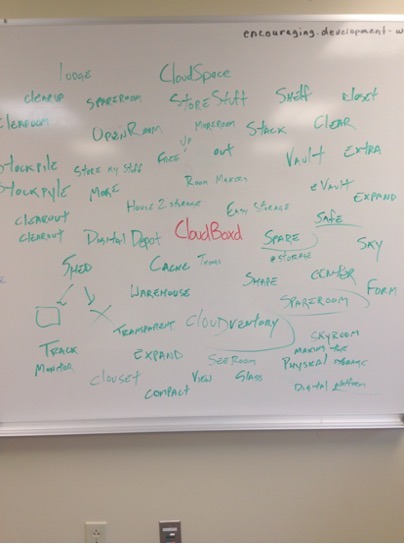 encouraging.development-w
lodge CloudSpace
clearup SpareRoom StoreStuff Shelf closet
OpenRoom MoreRoom Stack Clear
Free Up out
Stockpile Store my Stuff Vault Extra
Stockpyle More Room Maker eVault Expand
clearout House 2 storage Easy Storage Safe
clearout Digital Depot CloudBoxd Spare Sky
estorage
Shed Cache Share Form
Warehouse SpareRoom
Transparent Cloudventory Skyroom
Track Expand SeeRoom making the
Monitor View Glass Physical storage
Clouset Compact Digital platform